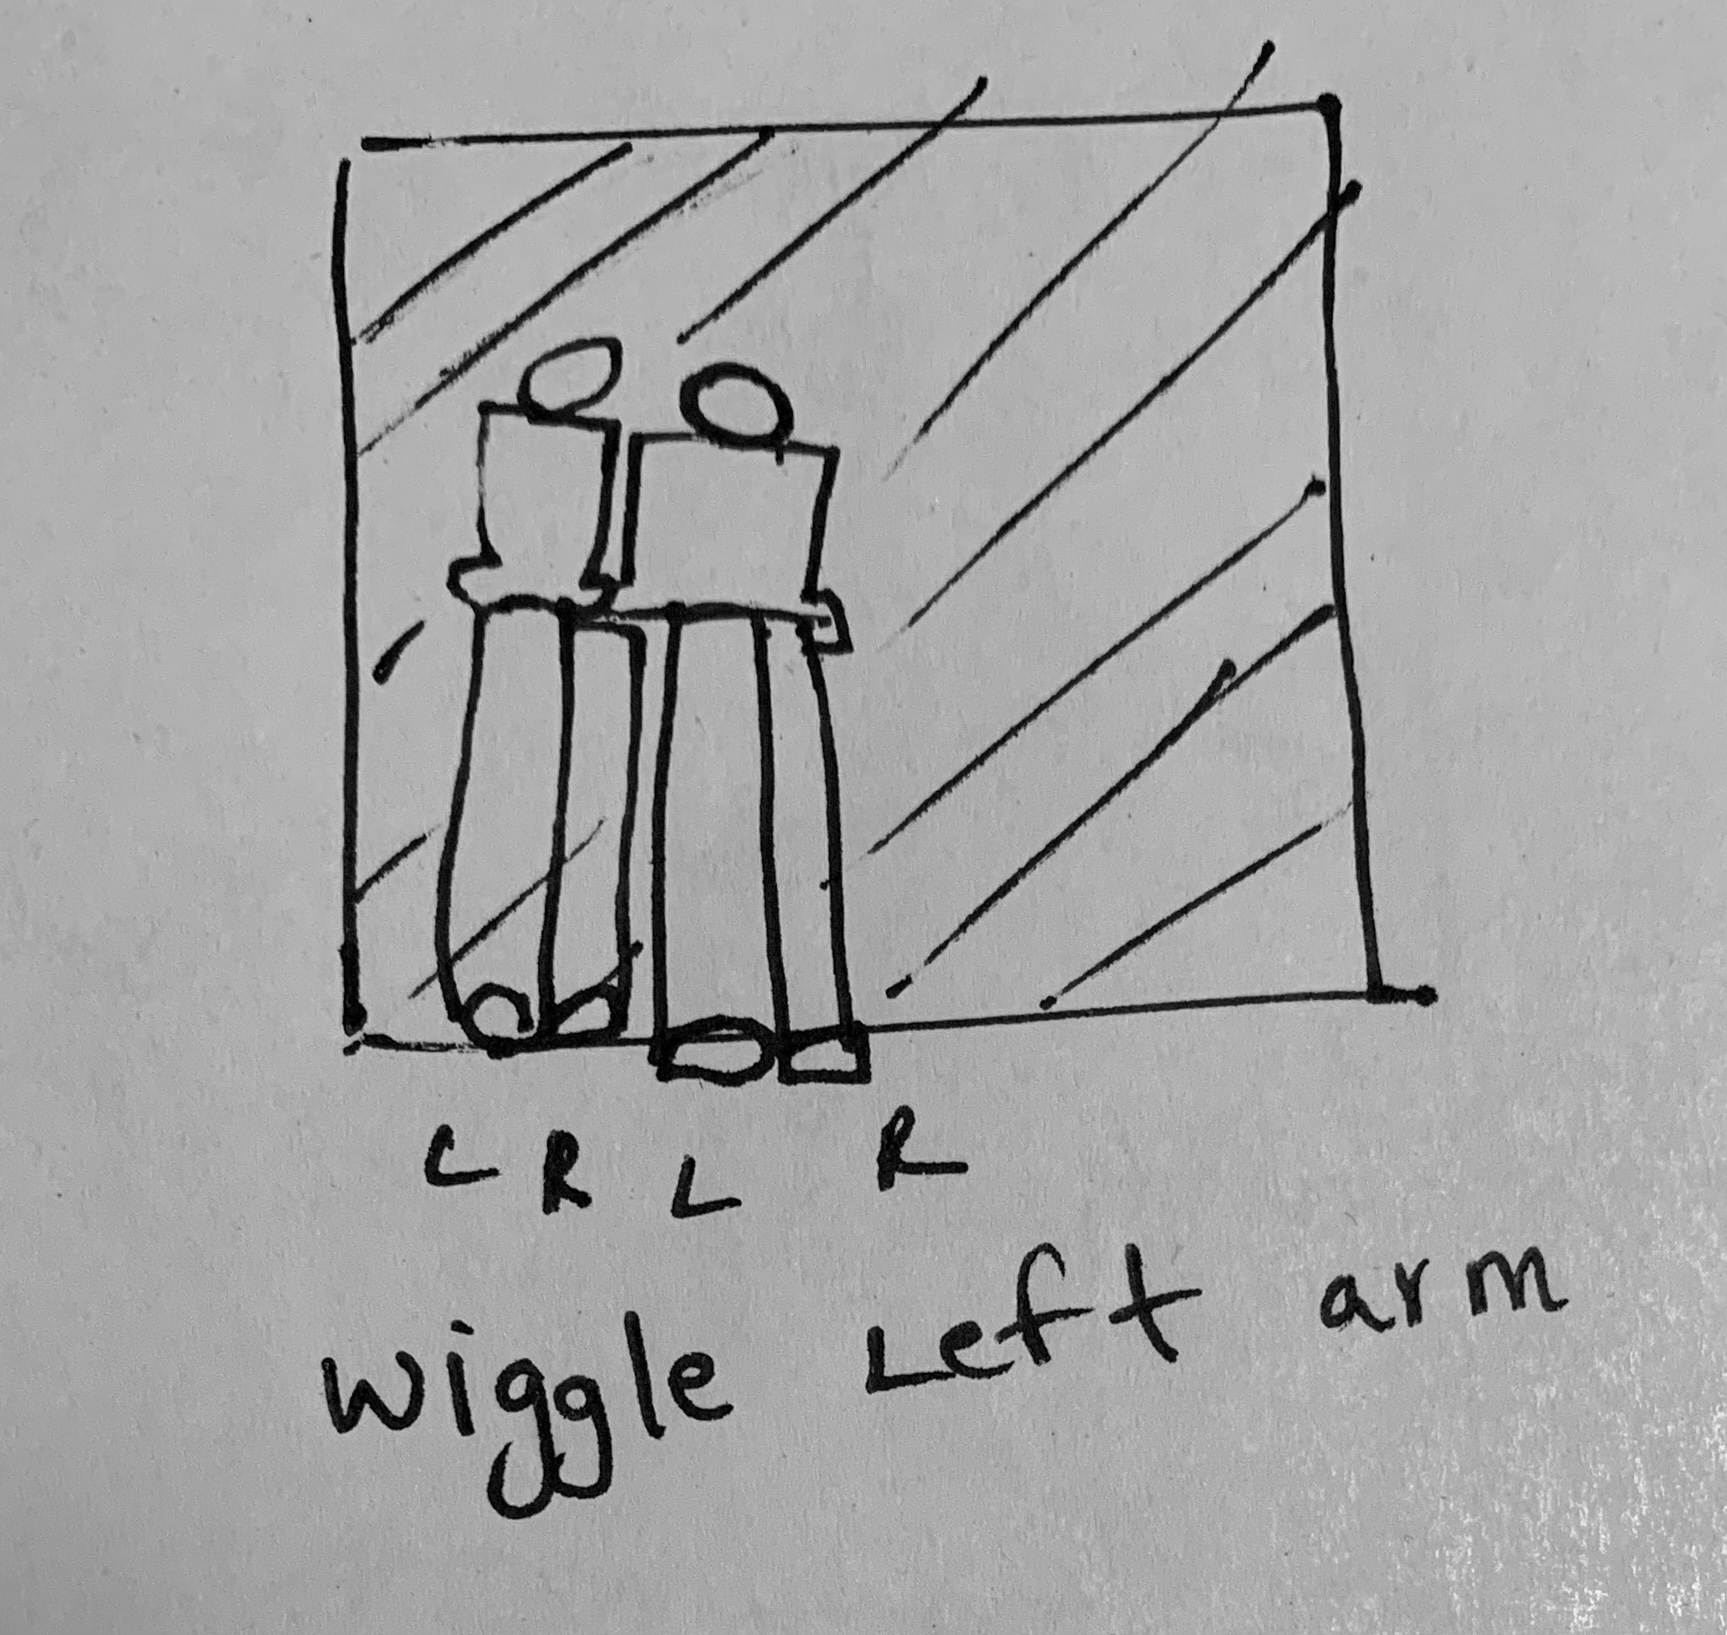 L R L R
Wiggle Left arm